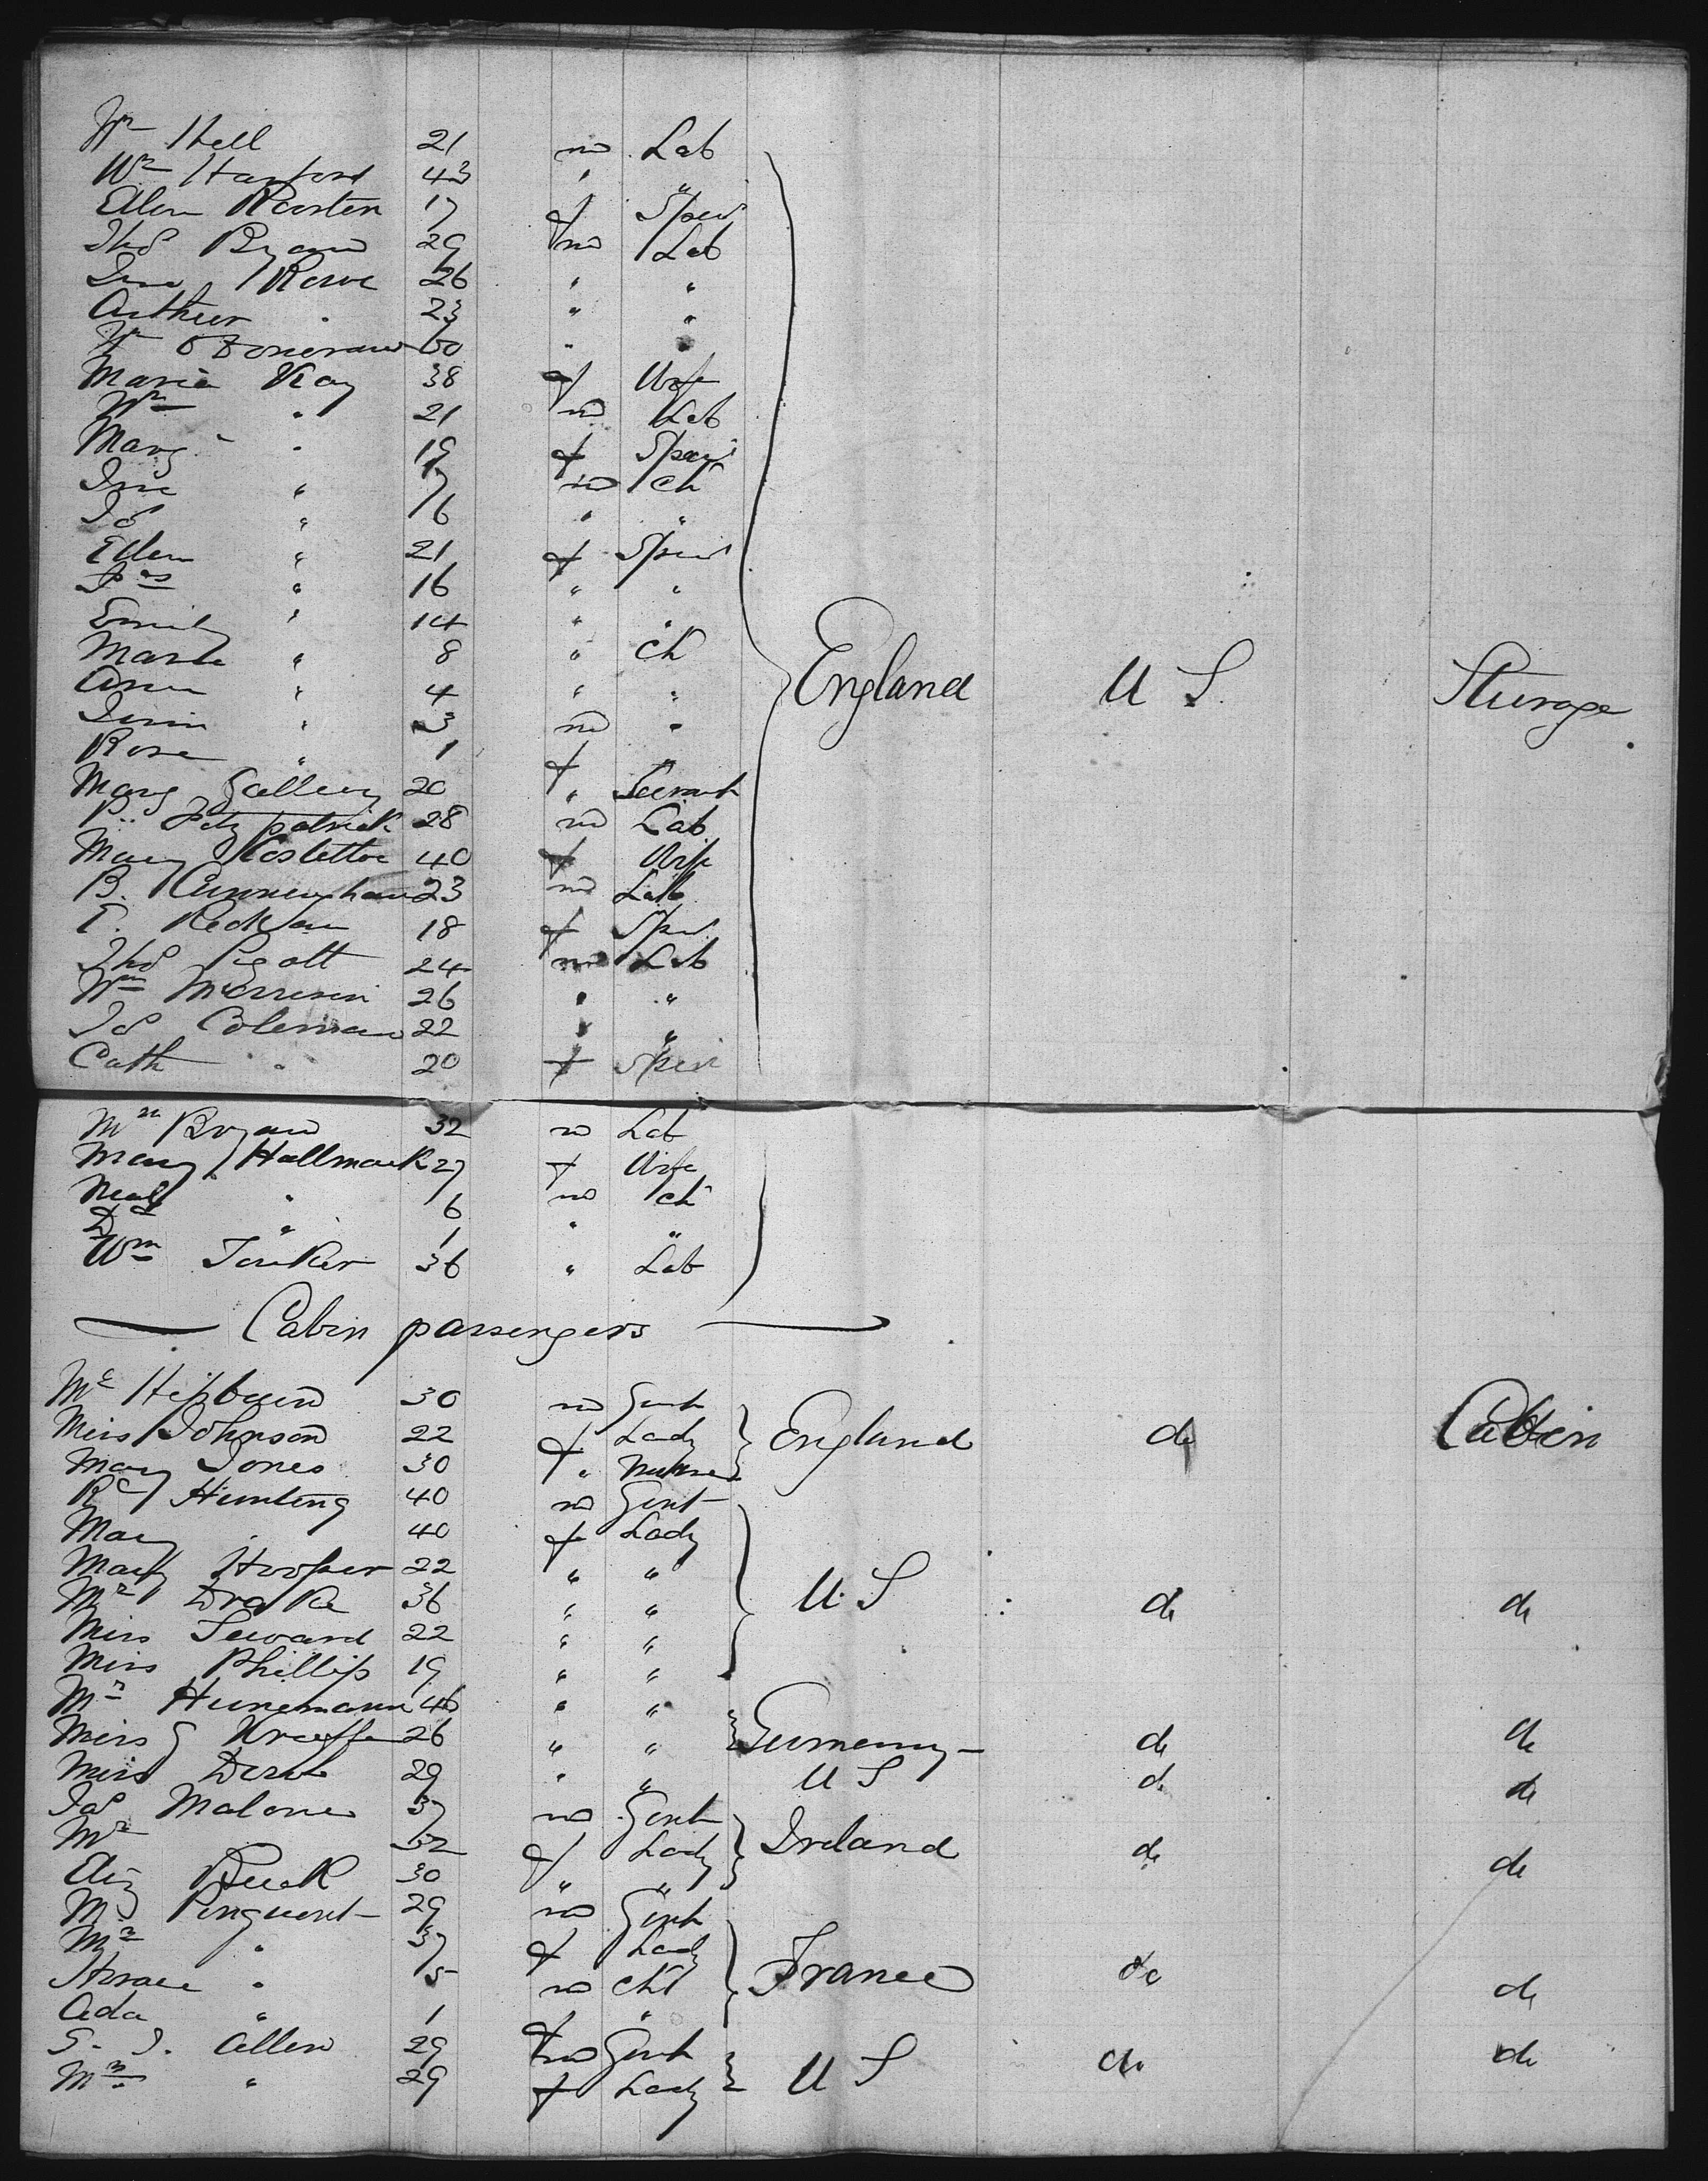 Wm Hall 21 m Lab
Wm Harford 43 " "
Ellen 17 f Spin
Thos Bryan 29 m Lab
Rowe 26 " "
Arthur " 23 " "
Wm O Donovan 60 " "
Maria Kay 38 f Wife
Wm " 21 m Lab
Marg " 19 f Spin
Jno " 7 m Ch
Js " 6 " "
Ellen " 21 f Spin
" 16 " "
Emily " 14 " "
Martha " 8 " Ch
Ann " 4 " " England U S. Sterage
" 3 m "
Rose " 1 f "
Mary 20 " Servant
P. Fitzpatrick 28 m Lab
Mary Kostettoe 40 f Wife
B. Cunningham 23 m Lab
18 f Spin
Thos Pigott 24 m Lab
Wm Morrison 26 " "
Js Coleman 22 " "
Cath " 20 f Spin
Bryan 32 m Lab
Mary Hallmark 27 f Wife
Neal " 6 m Ch
Dd " 1 " "
Wm 36 " Lab
Cabin passengers
Mr Hepburn 30 m Gent
Miss Johnson 22 f Lady England do Cabin
Mary Jones 30 " Nurse
Rd Hunting 40 m Gent
Mary " 40 f Lady
Mary Hooper 22 " "
Mrs Drake 36 " " U. S do do
Miss Seward 22 " "
Miss Phillips 19 " "
Mrs Hunemann 46 " "
Miss G 26 " " Germany do do
Miss 29 " " U S do do
Jas Malone 37 m Gent
Mrs 32 f Lady Ireland do do
Eliz Buck 30 " "
M. Pinguent 29 m Gent
Mrs " 37 f Lady
Horace " 5 m Chd France do do
Ada " 1 f "
G. J. Allen 29 m Gent
Mrs " 29 f Lady U S do do